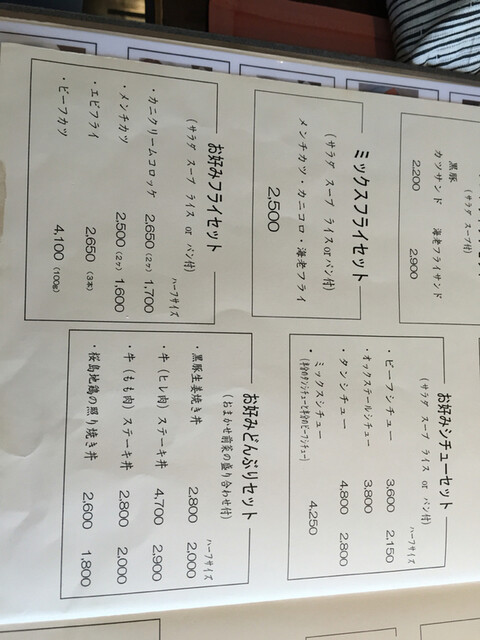 黒豚
(サラダ スープ付)
カツサンド 海老フライサンド
2.200 2.900
ミックスフライセット
(サラダ スープ ライス or パン付)
メンチカツ・カニコロ・海老フライ
2.500
お好みフライセット
(サラダ スープ ライス or パン付)
ハーフサイズ
・カニクリームコロッケ 2,650 (2ヶ) 1,700
・メンチカツ 2,500 (2ヶ) 1,600
・エビフライ 2,650 (3本)
・ビーフカツ 4,100 (100g)
お好みシチューセット
(サラダ スープ ライス or パン付)
ハーフサイズ
・ビーフシチュー 3.600 2.150
・オックステールシチュー 3.800
・タンシチュー 4.800 2.800
・ミックスシチュー 4.250
(半分のタンシチューと半分のビーフシチュー)
お好みどんぶりセット
(おまかせ前菜の盛り合わせ付)
ハーフサイズ
・黒豚生姜焼き丼 2.800 2,000
・牛(ヒレ肉)ステーキ丼 4,700 2,900
・牛(もも肉)ステーキ丼 2,800 2,000
・桜島地鶏の照り焼き丼 2,600 1,800